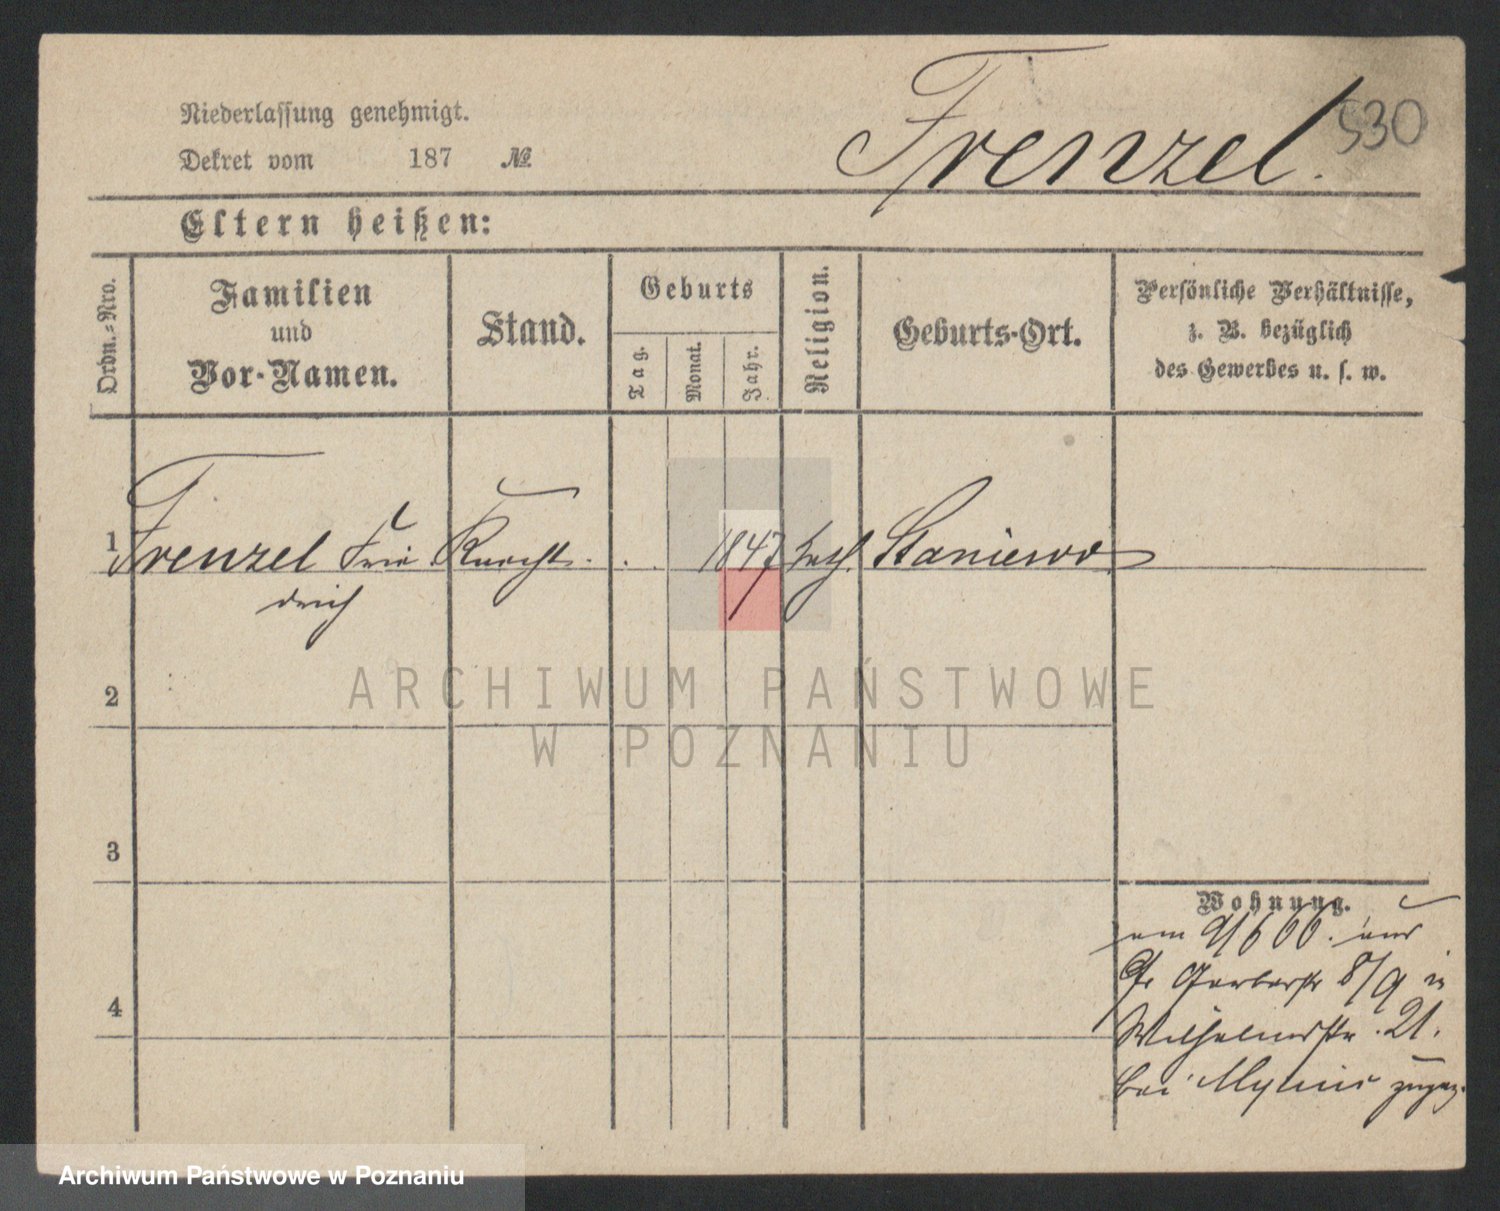 Niederlassung genehmigt.
Dekret vom 187 №
Frenzel.
530
Eltern heißen:
Ordn.-Nro.
Familien
und
Vor-Namen.
Stand.
Geburts
Tag.
Monat.
Jahr.
Religion.
Geburts-Ort.
Persönliche Verhältnisse,
z. B. bezüglich
des Gewerbes u. s. w.
1 Frenzel Frie Knecht. . . 1847 kath. Staniewo
drich
2
3
4
Wohnung.
am 9/6 66. aus
Gr Gerberstr 8/9 in
Wilhelmsstr. 21.
bei Mylius zugez.
ARCHIWUM PAŃSTWOWE
W POZNANIU
Archiwum Państwowe w Poznaniu